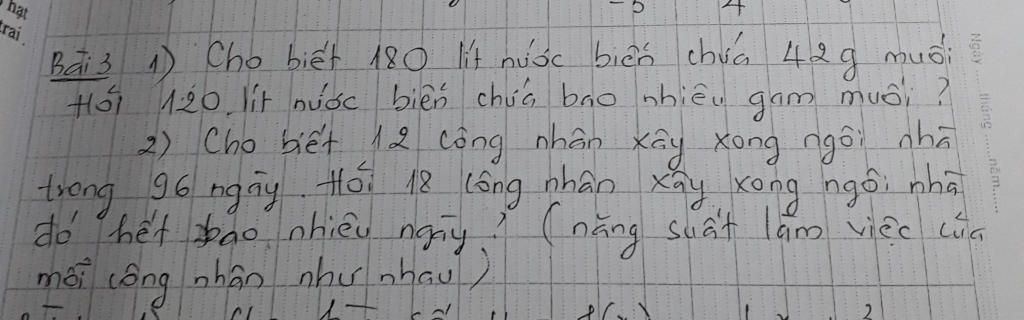 hạt
trai.
Bài 3 1) Cho biết 180 lít nước biển chứa 42g muối
Hỏi 120 lít nước biển chứa bao nhiêu gam muối?
2) Cho biết 12 công nhân xây xong ngôi nhà
trong 96 ngày. Hỏi 18 công nhân xây xong ngôi nhà
đó hết bao nhiêu ngày? (năng suất làm việc của
mỗi công nhân như nhau)
Ngày ..... tháng ..... năm .....